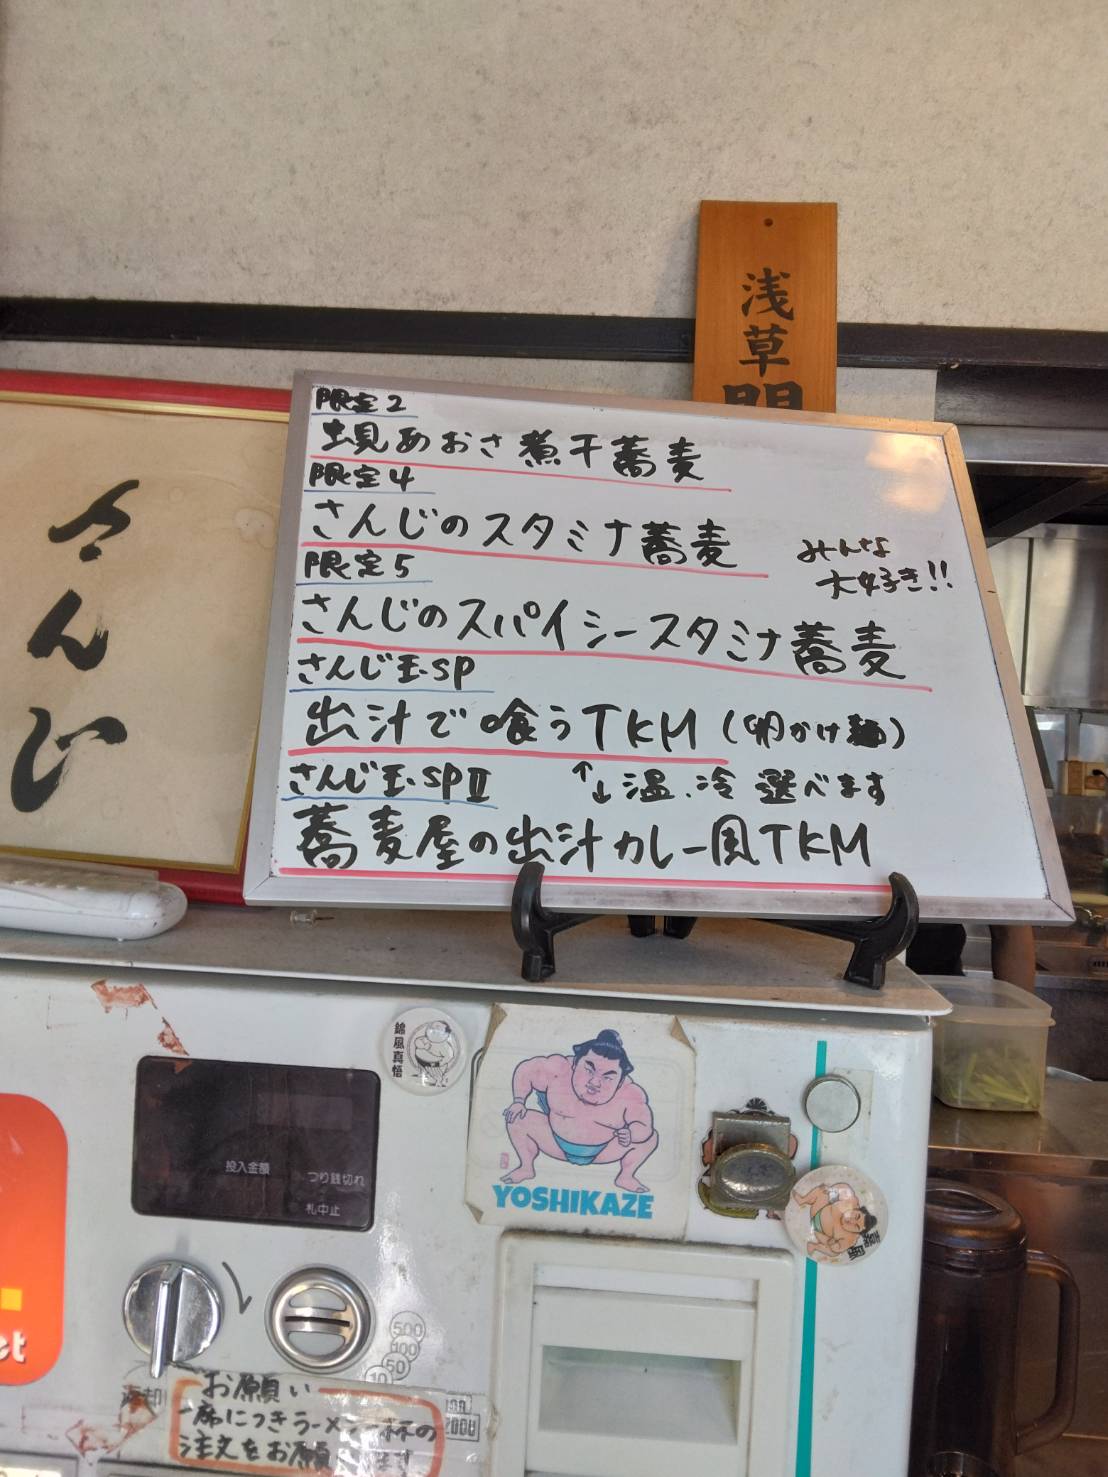 浅草
限定2
蜆あおさ煮干蕎麦
限定4
さんじのスタミナ蕎麦
みんな
大好き!!
限定5
さんじのスパイシースタミナ蕎麦
さんじ玉SP
出汁で喰うTKM(卵かけ麺)
さんじ玉SPⅡ
↑↓温、冷 選べます
蕎麦屋の出汁カレー風TKM
さんじ
錦風真悟
YOSHIKAZE
嘉風
投入金額
つり銭切れ
札中止
500
100
50
10
返却
お願い
一席につきラーメン一杯の
注文をお願
ます
2000